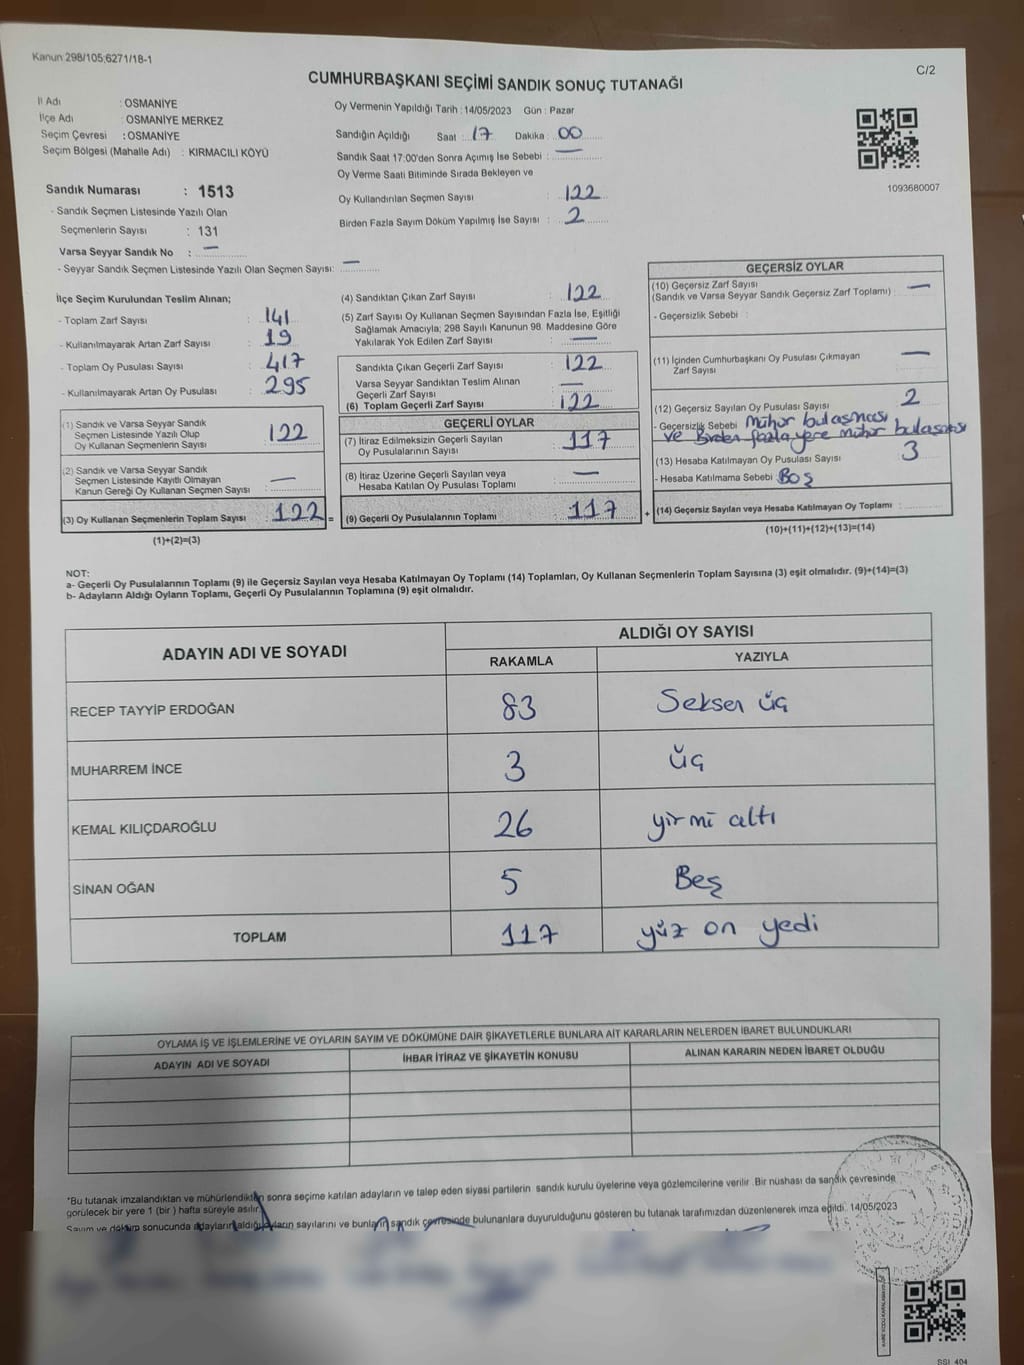 Kanun:298/105;6271/18-1
C/2
CUMHURBAŞKANI SEÇİMİ SANDIK SONUÇ TUTANAĞI
İl Adı : OSMANİYE
İlçe Adı : OSMANİYE MERKEZ
Seçim Çevresi : OSMANİYE
Seçim Bölgesi (Mahalle Adı) : KIRMACILI KÖYÜ
Sandık Numarası : 1513
- Sandık Seçmen Listesinde Yazılı Olan
Seçmenlerin Sayısı : 131
Varsa Seyyar Sandık No : —
- Seyyar Sandık Seçmen Listesinde Yazılı Olan Seçmen Sayısı: —
Oy Vermenin Yapıldığı Tarih : 14/05/2023 Gün : Pazar
Sandığın Açıldığı Saat : 17 Dakika : 00
Sandık Saat 17:00'den Sonra Açımış İse Sebebi : —
Oy Verme Saati Bitiminde Sırada Bekleyen ve
Oy Kullandırılan Seçmen Sayısı : 122
Birden Fazla Sayım Döküm Yapılmış İse Sayısı : 2
1093680007
İlçe Seçim Kurulundan Teslim Alınan;
- Toplam Zarf Sayısı : 141
- Kullanılmayarak Artan Zarf Sayısı : 19
- Toplam Oy Pusulası Sayısı : 417
- Kullanılmayarak Artan Oy Pusulası : 295
(1) Sandık ve Varsa Seyyar Sandık
Seçmen Listesinde Yazılı Olup
Oy Kullanan Seçmenlerin Sayısı 122
(2) Sandık ve Varsa Seyyar Sandık
Seçmen Listesinde Kayıtlı Olmayan
Kanun Gereği Oy Kullanan Seçmen Sayısı —
(3) Oy Kullanan Seçmenlerin Toplam Sayısı : 122 =
(1)+(2)=(3)
(4) Sandıktan Çıkan Zarf Sayısı : 122
(5) Zarf Sayısı Oy Kullanan Seçmen Sayısından Fazla İse, Eşitliği
Sağlamak Amacıyla; 298 Sayılı Kanunun 98. Maddesine Göre
Yakılarak Yok Edilen Zarf Sayısı : —
Sandıkta Çıkan Geçerli Zarf Sayısı : 122
Varsa Seyyar Sandıktan Teslim Alınan
Geçerli Zarf Sayısı : —
(6) Toplam Geçerli Zarf Sayısı : 122
GEÇERLİ OYLAR
(7) İtiraz Edilmeksizin Geçerli Sayılan
Oy Pusulalarının Sayısı : 117
(8) İtiraz Üzerine Geçerli Sayılan veya
Hesaba Katılan Oy Pusulası Toplamı : —
(9) Geçerli Oy Pusulalarının Toplamı : 117 +
GEÇERSİZ OYLAR
(10) Geçersiz Zarf Sayısı
(Sandık ve Varsa Seyyar Sandık Geçersiz Zarf Toplamı) : —
- Geçersizlik Sebebi :
(11) İçinden Cumhurbaşkanı Oy Pusulası Çıkmayan
Zarf Sayısı : —
(12) Geçersiz Sayılan Oy Pusulası Sayısı : 2
- Geçersizlik Sebebi Mühür bulaşması
ve Birden fazla yere mühür bulaşması
(13) Hesaba Katılmayan Oy Pusulası Sayısı : 3
- Hesaba Katılmama Sebebi : Boş
(14) Geçersiz Sayılan veya Hesaba Katılmayan Oy Toplamı :
(10)+(11)+(12)+(13)=(14)
NOT:
a- Geçerli Oy Pusulalarının Toplamı (9) ile Geçersiz Sayılan veya Hesaba Katılmayan Oy Toplamı (14) Toplamları, Oy Kullanan Seçmenlerin Toplam Sayısına (3) eşit olmalıdır. (9)+(14)=(3)
b- Adayların Aldığı Oyların Toplamı, Geçerli Oy Pusulalarının Toplamına (9) eşit olmalıdır.
ADAYIN ADI VE SOYADI
ALDIĞI OY SAYISI
RAKAMLA YAZIYLA
RECEP TAYYİP ERDOĞAN 83 Seksen üç
MUHARREM İNCE 3 üç
KEMAL KILIÇDAROĞLU 26 yirmi altı
SİNAN OĞAN 5 Beş
TOPLAM 117 yüz on yedi
OYLAMA İŞ VE İŞLEMLERİNE VE OYLARIN SAYIM VE DÖKÜMÜNE DAİR ŞİKAYETLERLE BUNLARA AİT KARARLARIN NELERDEN İBARET BULUNDUKLARI
ADAYIN ADI VE SOYADI İHBAR İTİRAZ VE ŞİKAYETİN KONUSU ALINAN KARARIN NEDEN İBARET OLDUĞU
*Bu tutanak imzalandıktan ve mühürlendikten sonra seçime katılan adayların ve talep eden siyasi partilerin sandık kurulu üyelerine veya gözlemcilerine verilir .Bir nüshası da sandık çevresinde
görülecek bir yere 1 (bir ) hafta süreyle asılır.
Sayım ve döküm sonucunda adayların aldığı oyların sayılarını ve bunların sandık çevresinde bulunanlara duyurulduğunu gösteren bu tutanak tarafımızdan düzenlenerek imza edildi. 14/05/2023
SSI_404